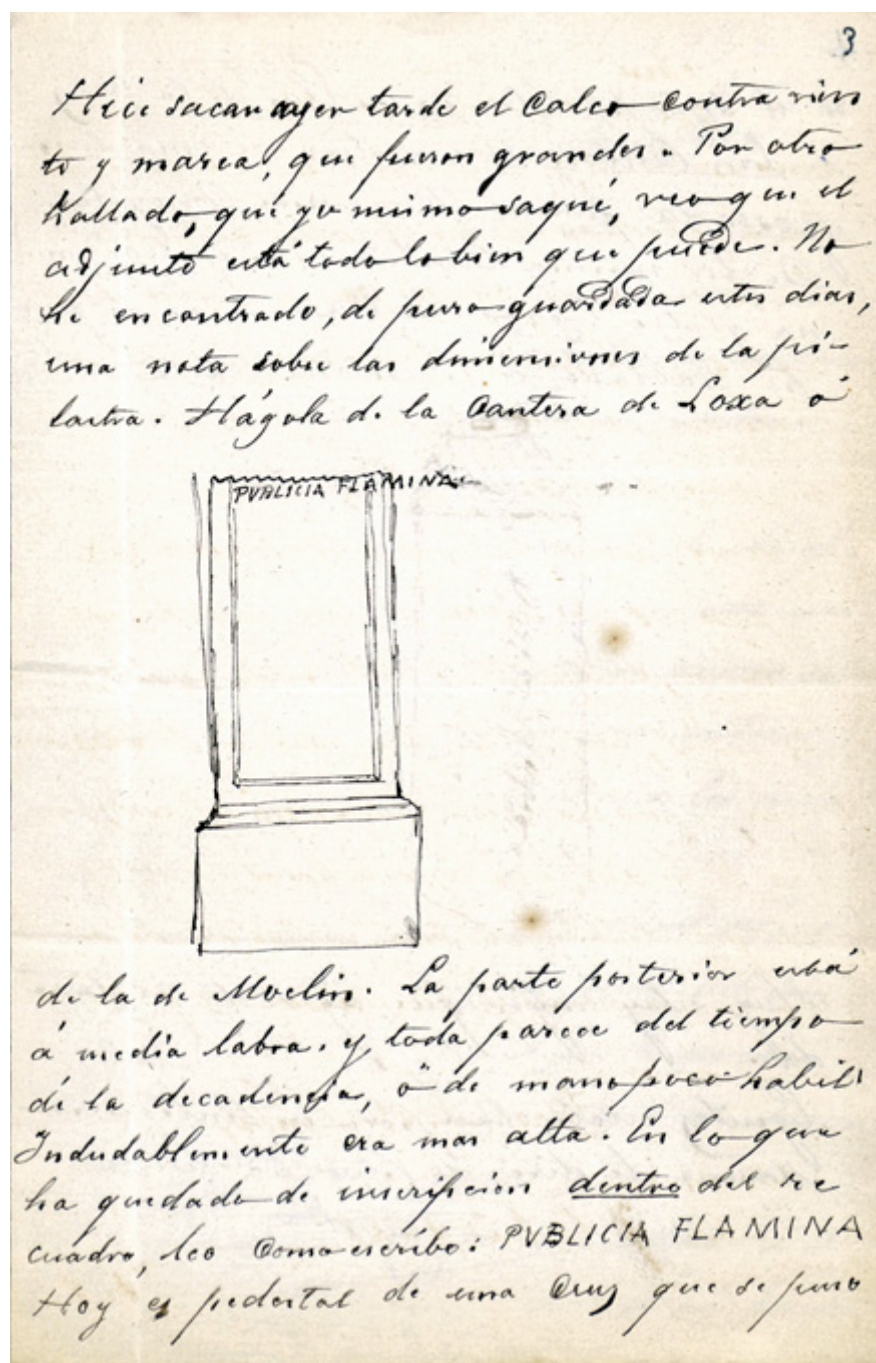 3
Hice sacar ayer tarde el calco contra vien
to y marea, que fueron grandes. Por otro
hallado, que yo mismo saqué, veo que el
adjunto está todo lo bien que puede. No
he encontrado, de puro guardada estos dias,
una nota sobre las dimensiones de la pi-
lastra. Hágola de la Cantera de Loxa ó
PVBLICIA FLAMINA
de la de Moclin. La parte posterior está
á media labra. y toda parece del tiempo
de la decadencia, ó de mano poco habil.
Indudablemente era mas alta. En lo que
ha quedado de inscripcion dentro del re
cuadro, leo como escribo: PVBLICIA FLAMINA
Hoy es pedestal de una Cruz que se puso